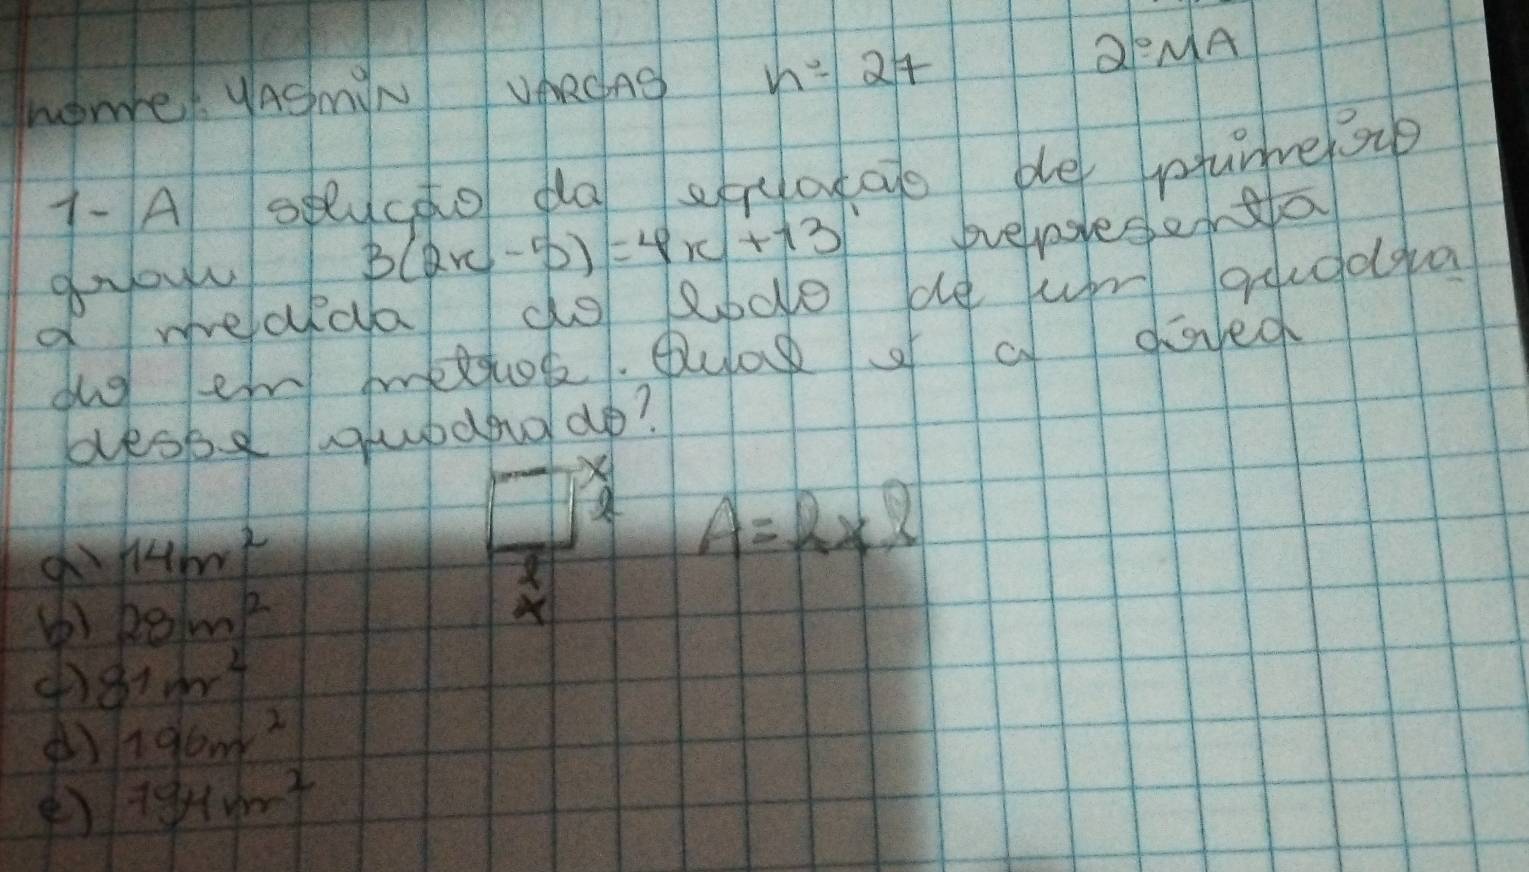 nome: YASMIN VARGAS nº 27 2ºMA
1- A solução da equação de primeiro
grau 3(2x-5)=4x+13 representa
a medida do lado de um quadra
do em metros. Qual é a área
desse quadrado?
x
l
A = l x l
l
x
a) 14m²
b) 28m²
c) 81m²
d) 196m²
e) 784m²